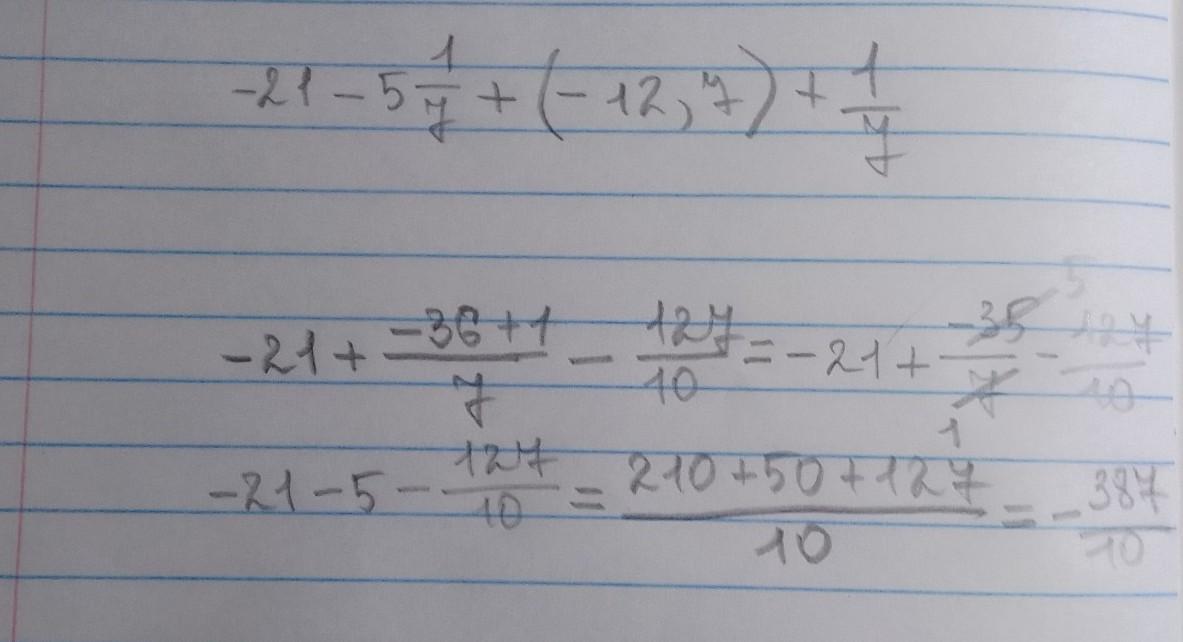 -21 - 5 1/7 + (-12,7) + 1/7
-21 + (-36+1)/7 - 127/10 = -21 + -35/7 5 1 - 127/10
-21 - 5 - 127/10 = (210+50+127)/10 = - 387/10